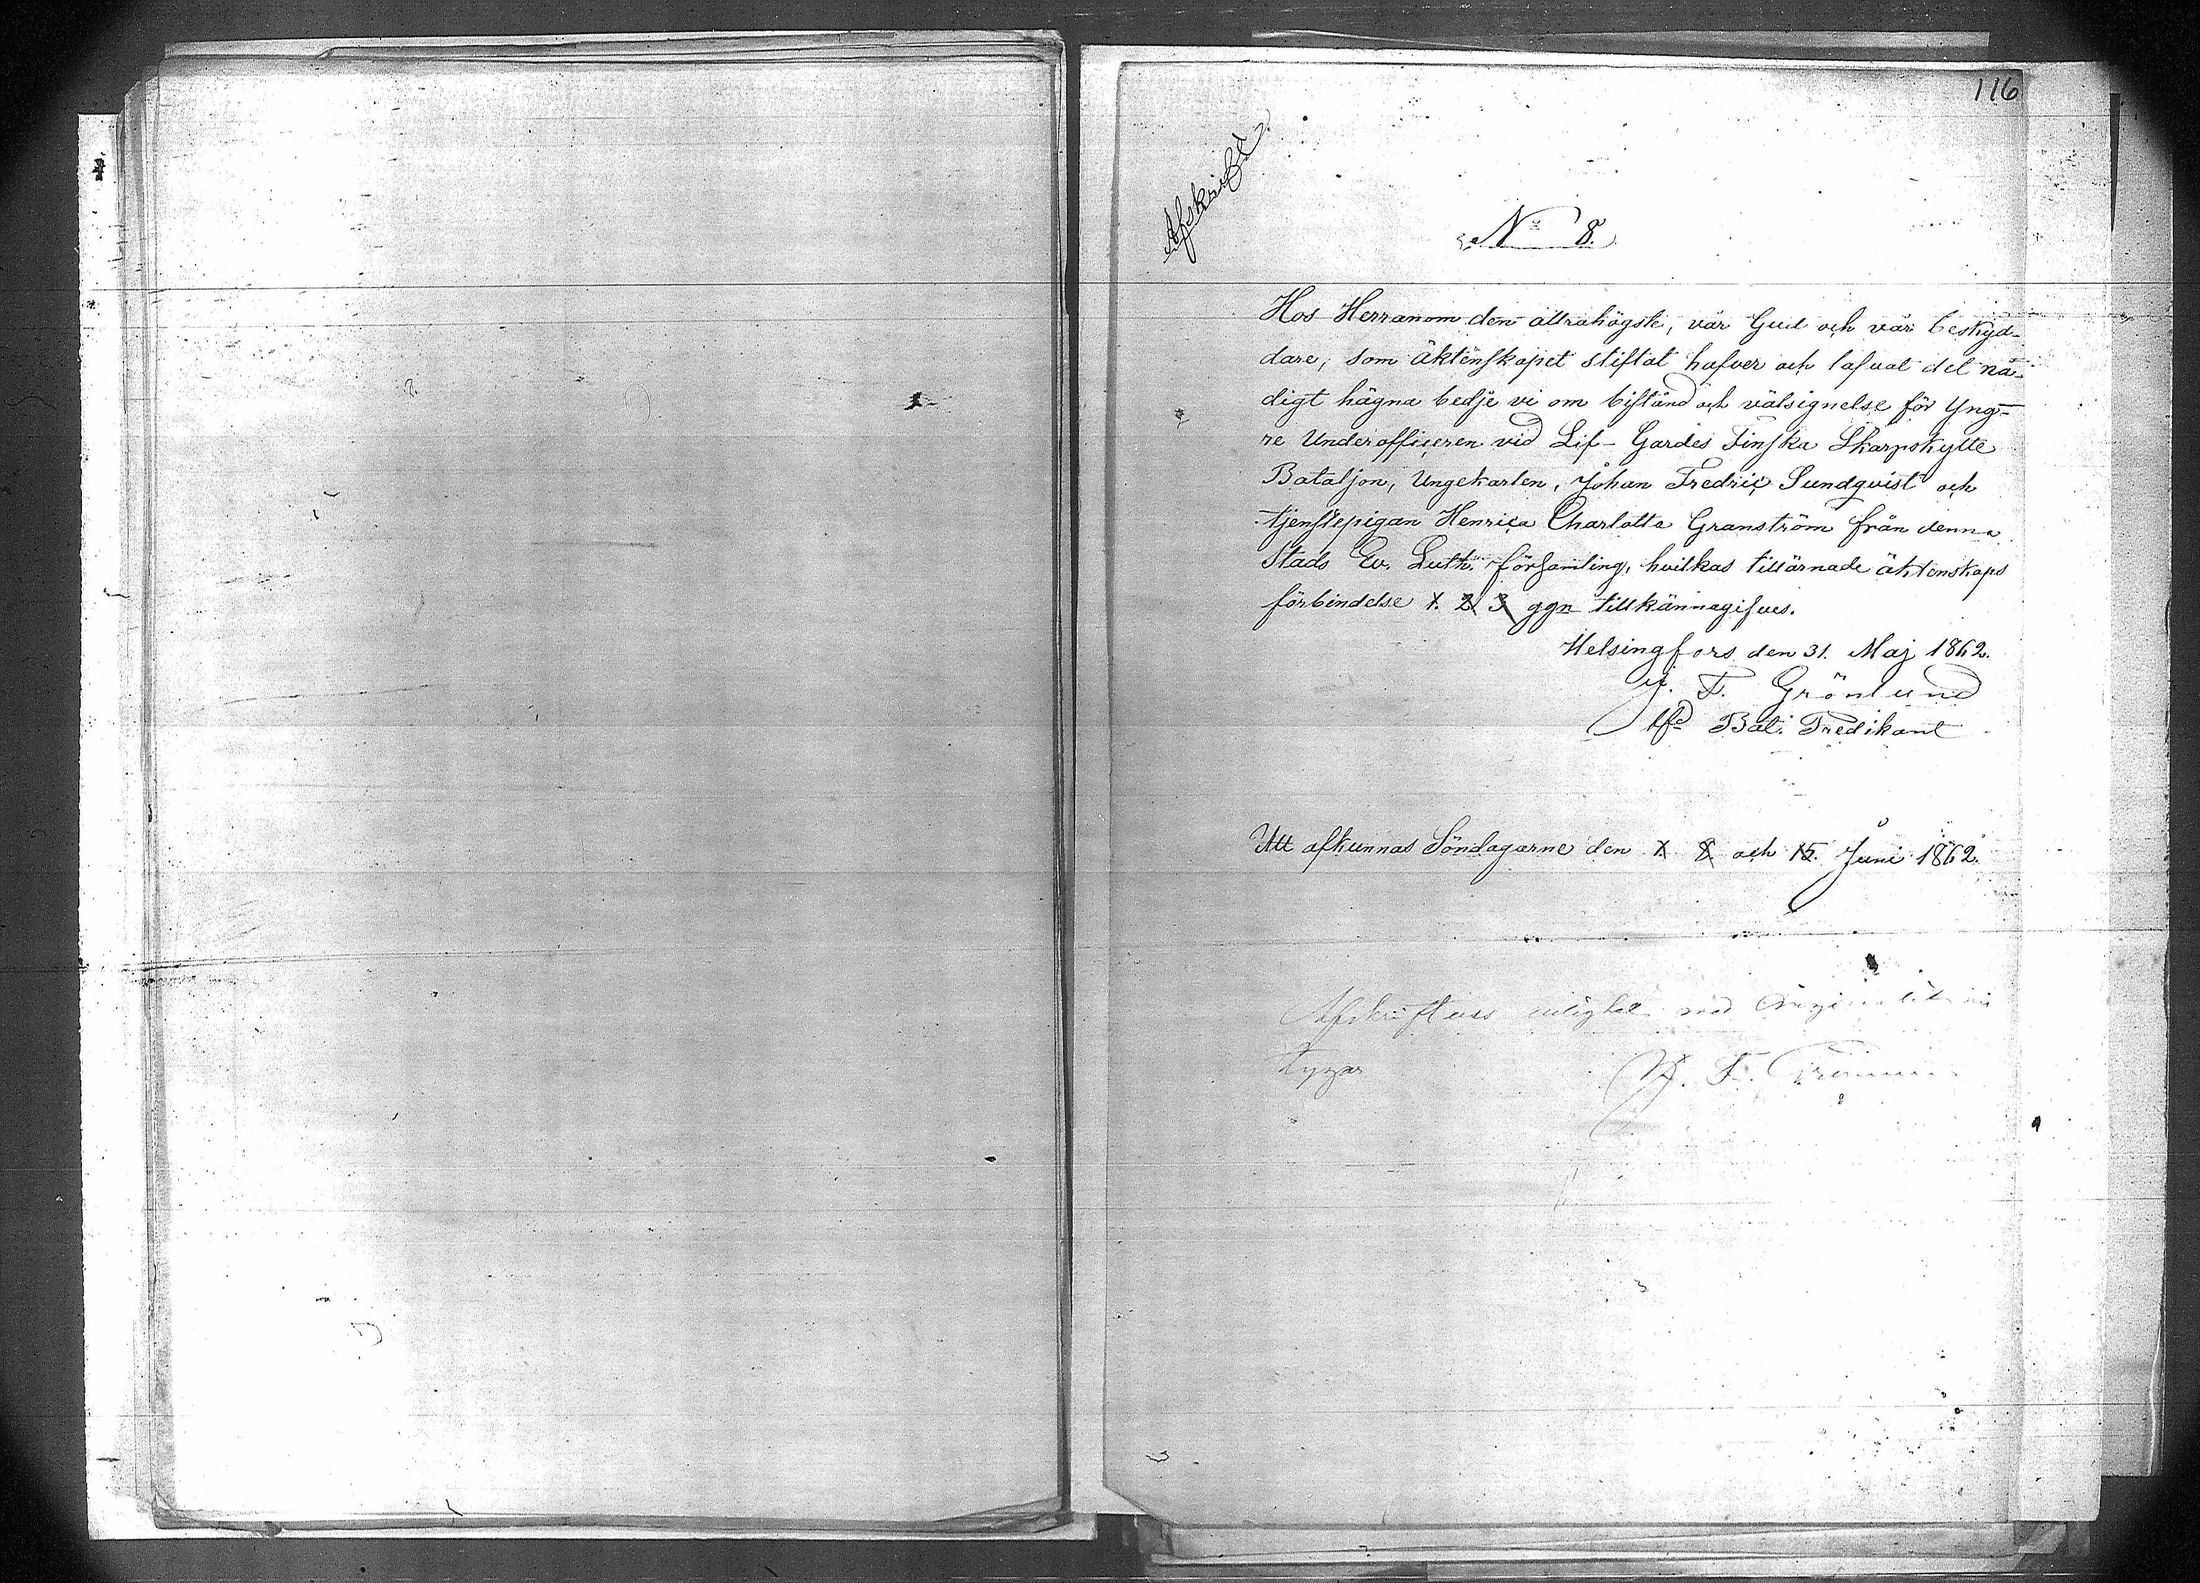 116
Afskrift.
No 8.
Hos Herranom den allrahögste, vår Gud och vår beskyd-
dare, som äktenskapet stiftat hafver och lafvat det nå-
digt hägna bedje vi om bistånd och välsignelse för Yng-
re Underofficeren vid Lif-Gardes Finska Skarpskytte
Bataljon, Ungekarlen, Johan Fredric Sundqvist och
tjenstepigan Henrica Charlotta Granström från denna
Stads Ev. Luth. församling, hvilkas tillärnade äktenskaps
förbindelse 1. 2 3 ggn tillkännagifves.
Helsingfors den 31. Maj 1862.
J. F. Grönlund
tfd Bat. Predikant
Att afkunnas Söndagarne den 1. 8 och 15. Juni 1862.
Afskriftens riktighet med
F.